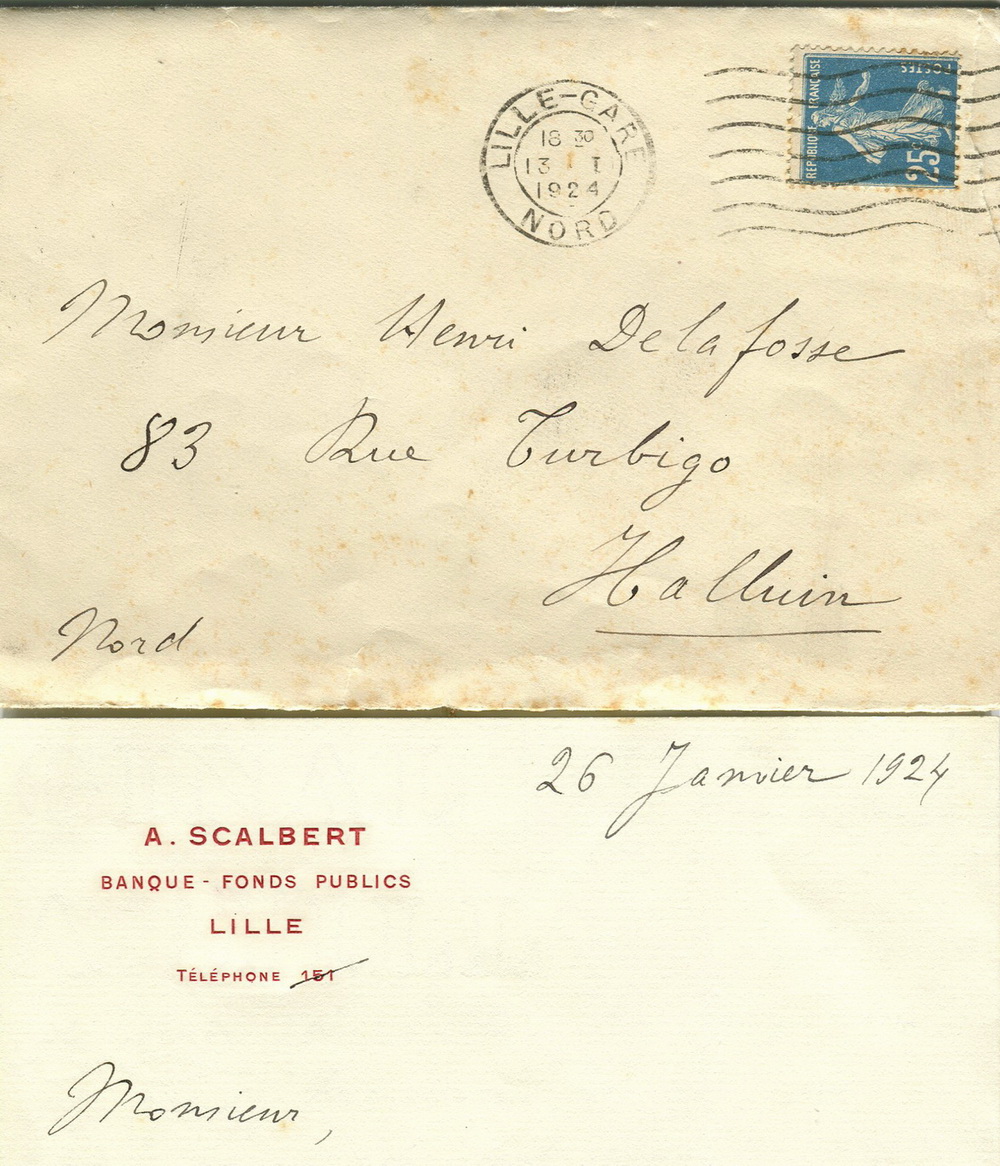 LILLE-GARE
18 30
13 I
1924
NORD
REPUBLIQUE FRANÇAISE
POSTES
25
Monsieur Henri Delafosse
83 Rue Turbigo
Halluin
Nord
26 Janvier 1924
A. SCALBERT
BANQUE - FONDS PUBLICS
LILLE
TÉLÉPHONE 151
Monsieur,